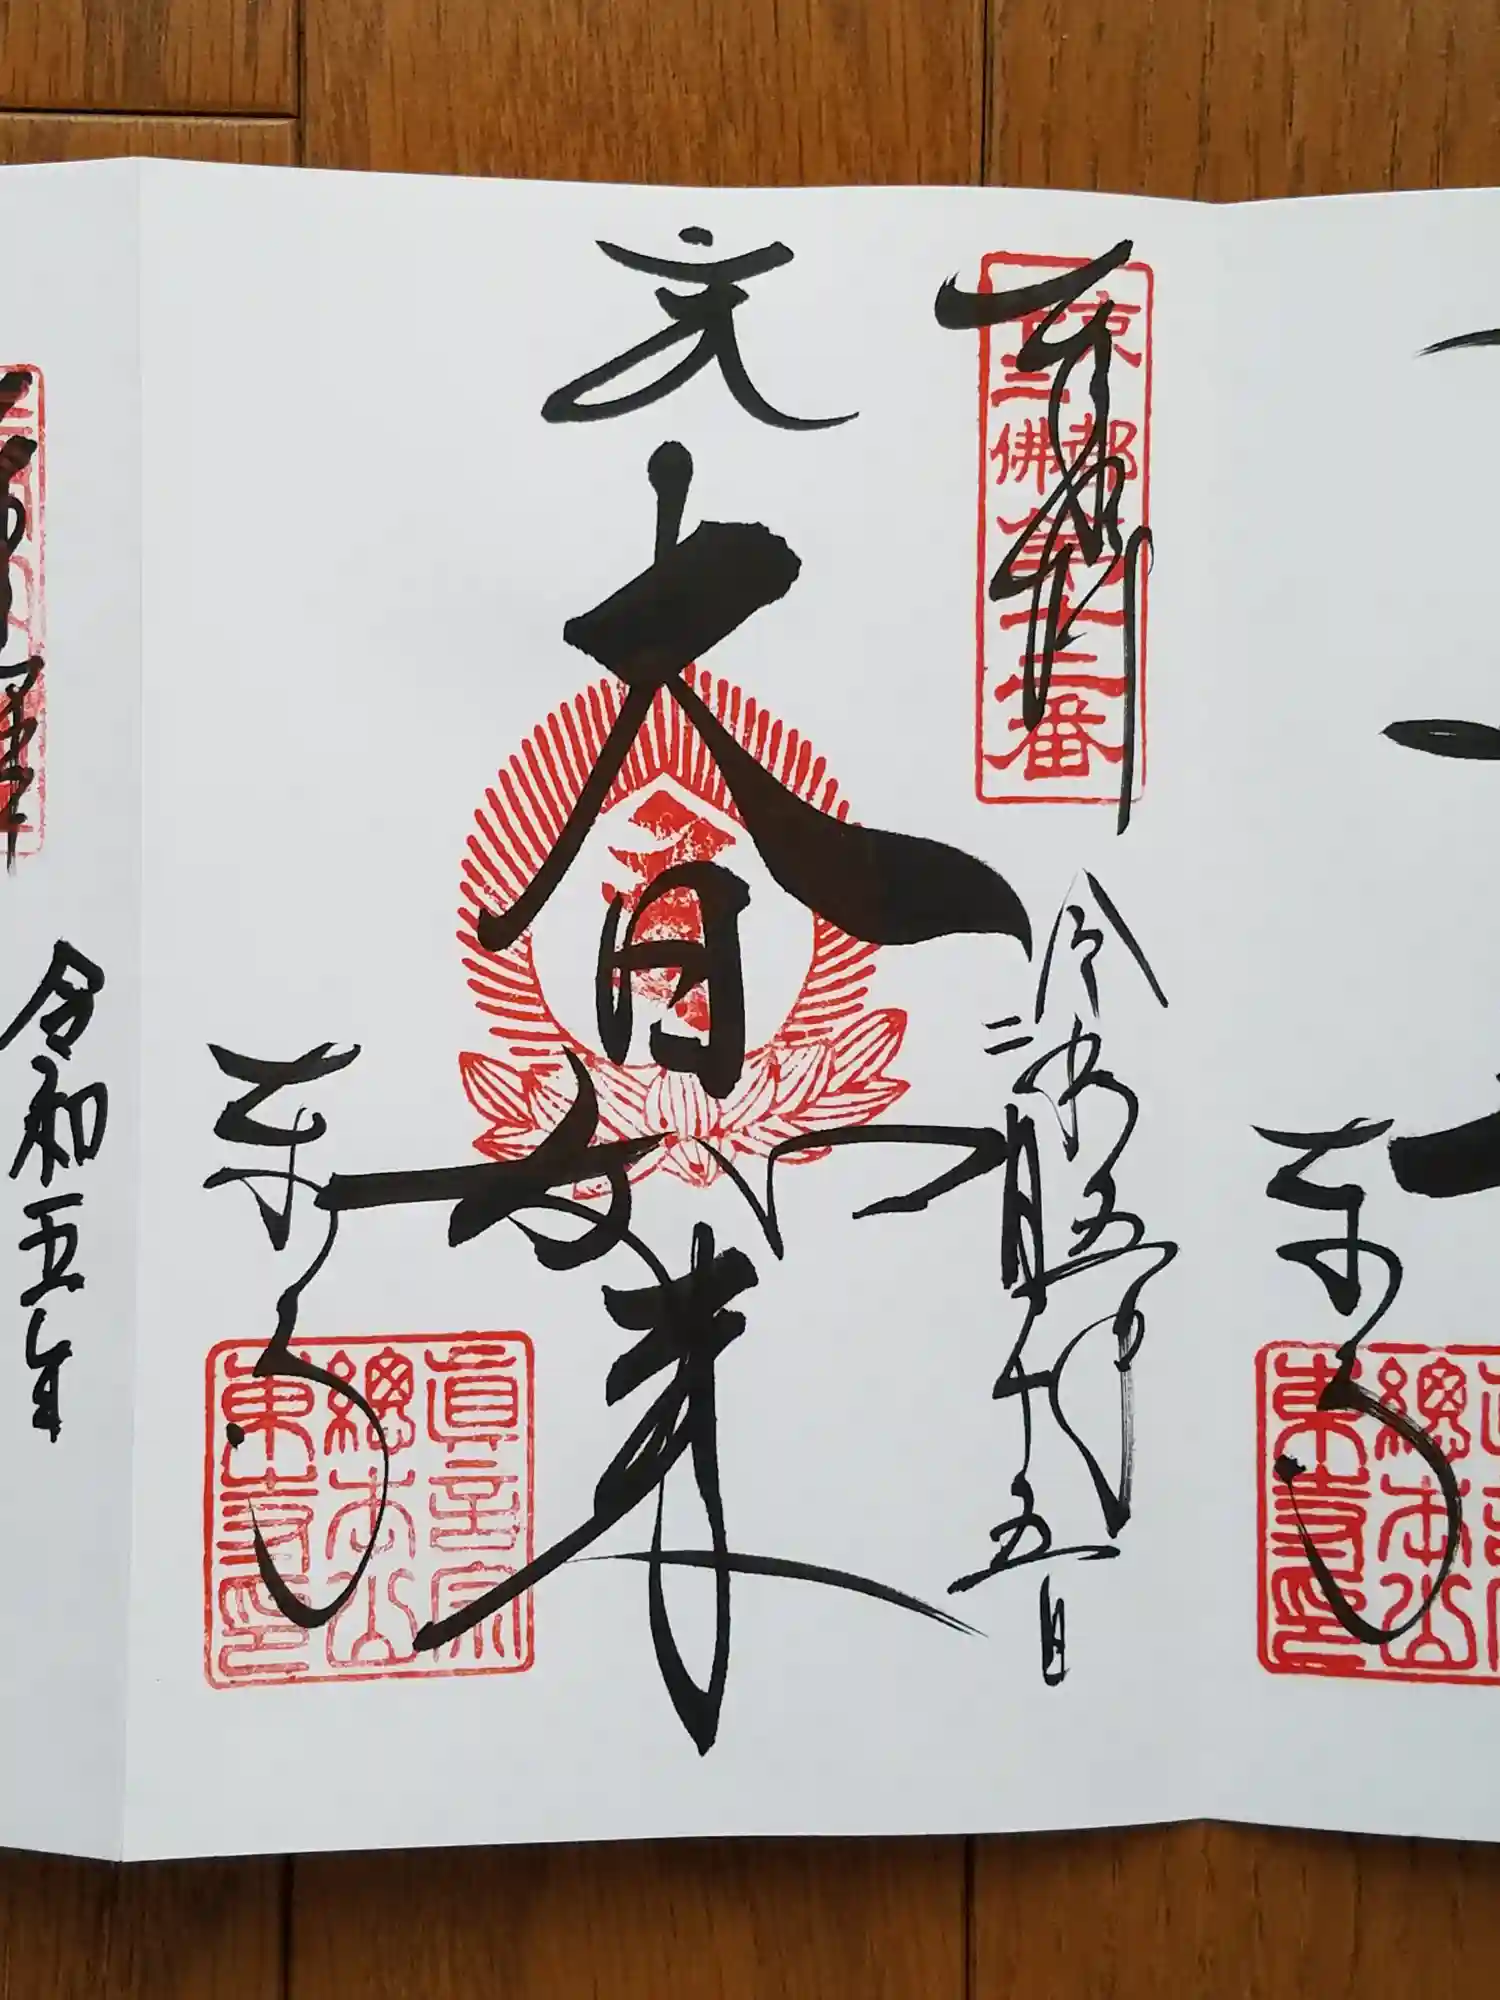 奉拝
京都
十三佛
第十二番
令和五年
二月十五日
大日如来
東寺
真言宗
總本山
東寺印
令和五年
東寺
總本山
東寺印